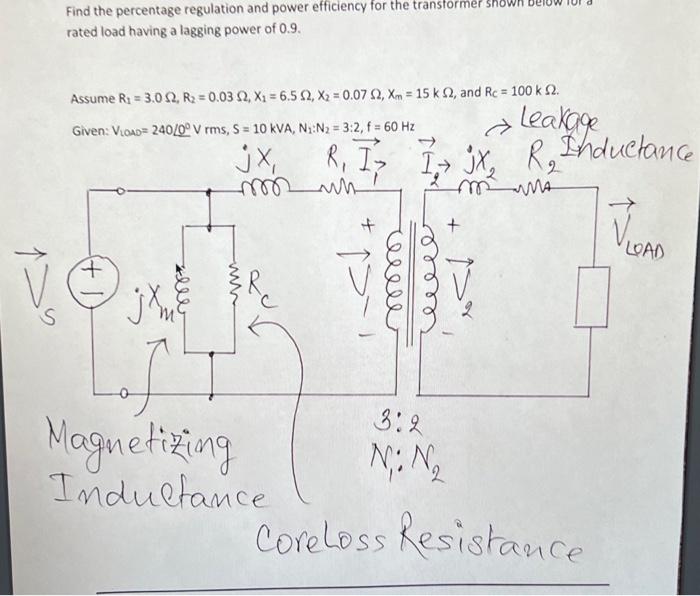 Find the percentage regulation and power efficiency for the transformer shown below for a
rated load having a lagging power of 0.9.
Assume R₁ = 3.0 Ω, R₂ = 0.03 Ω, X₁ = 6.5 Ω, X₂ = 0.07 Ω, Xₘ = 15 k Ω, and Rc = 100 k Ω.
Given: VLOAD= 240/0º V rms, S = 10 kVA, N₁:N₂ = 3:2, f = 60 Hz
→ Leakage
Inductance
jX₁ R₁ I₁ I₂ jX₂ R₂
+ +
VLOAD
Vs + − jXm Rc V₁ V₂
− −
3:2
N₁:N₂
Magnetizing
Inductance
CoreLoss Resistance